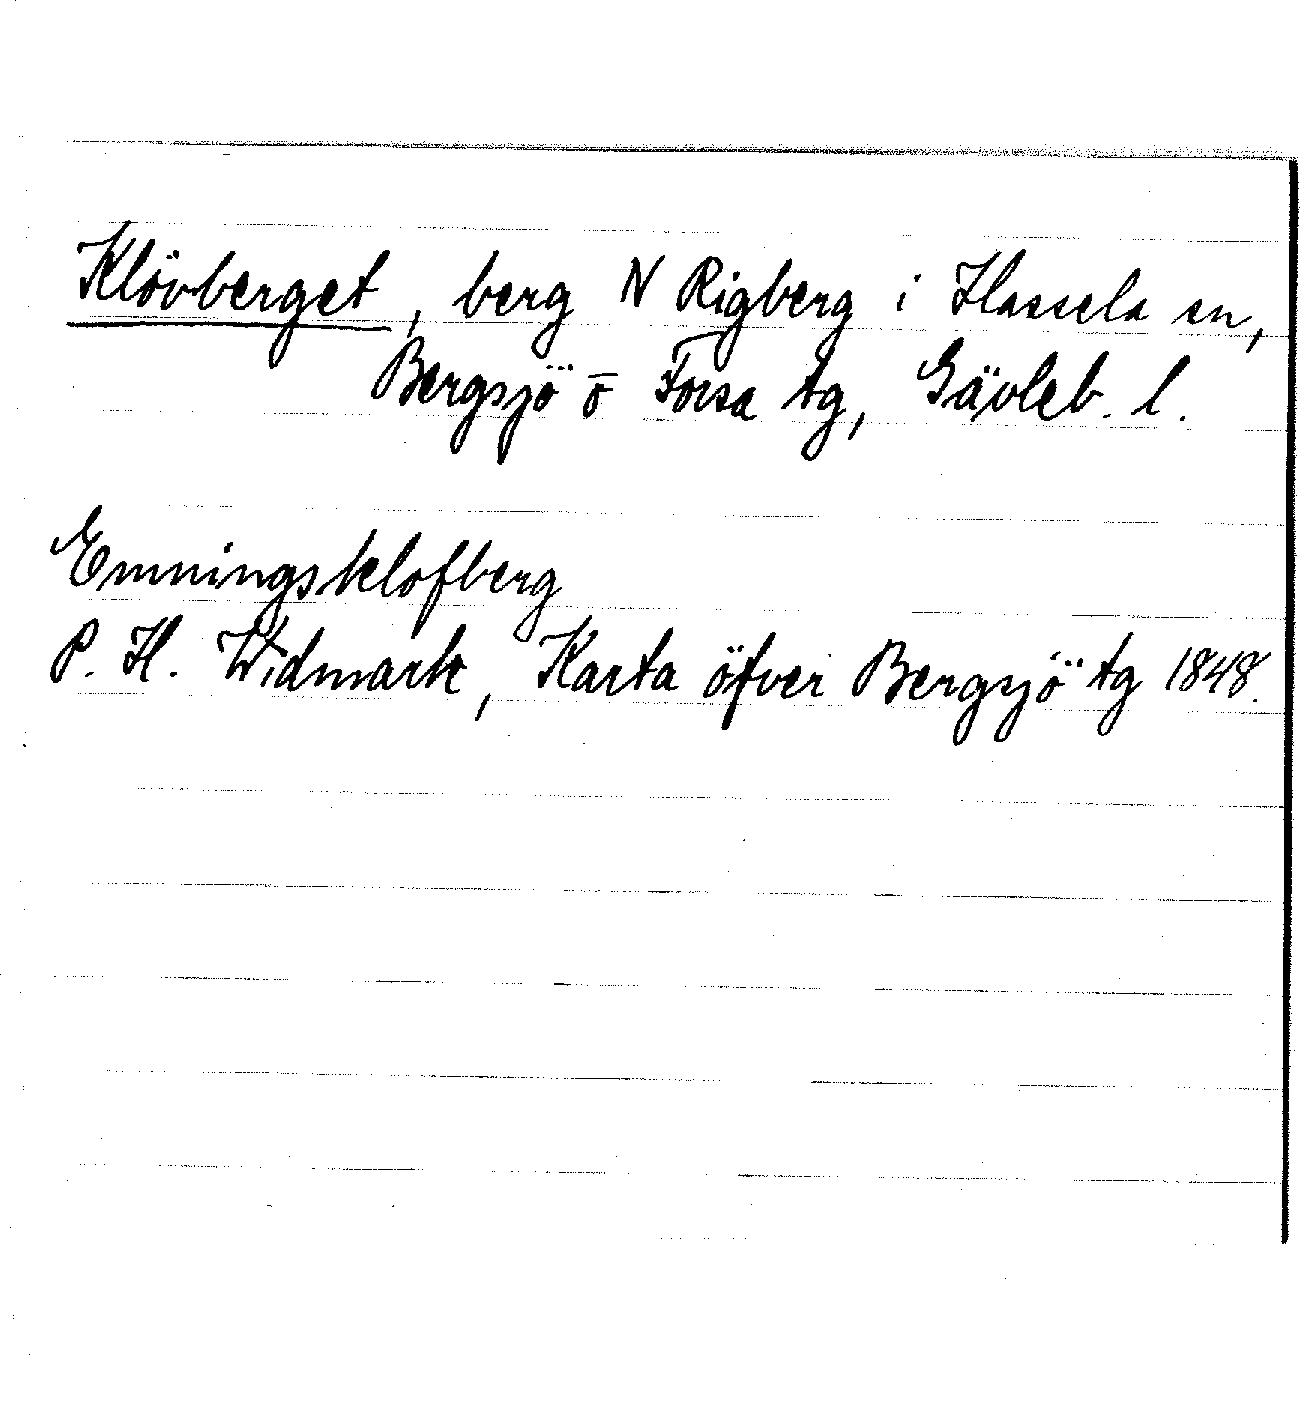 Klövberget, berg N Rigberg i Hassela sn,
Bergsjö o Forsa tg, Gävleb. l.
Emningsklofberg
P. H. Widmark, Karta öfver Bergsjö tg 1848.